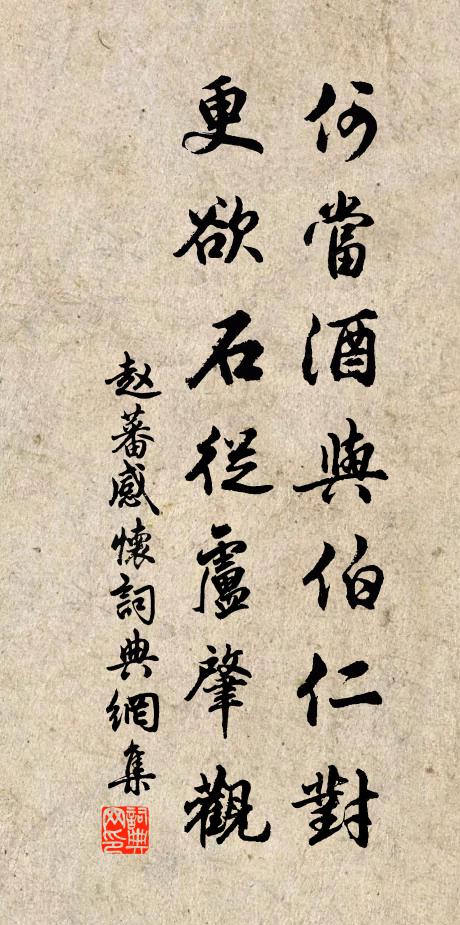 何當酒與伯仁對
更欲石從盧肇觀
赵蕃感懷詞典網集
詞典網印